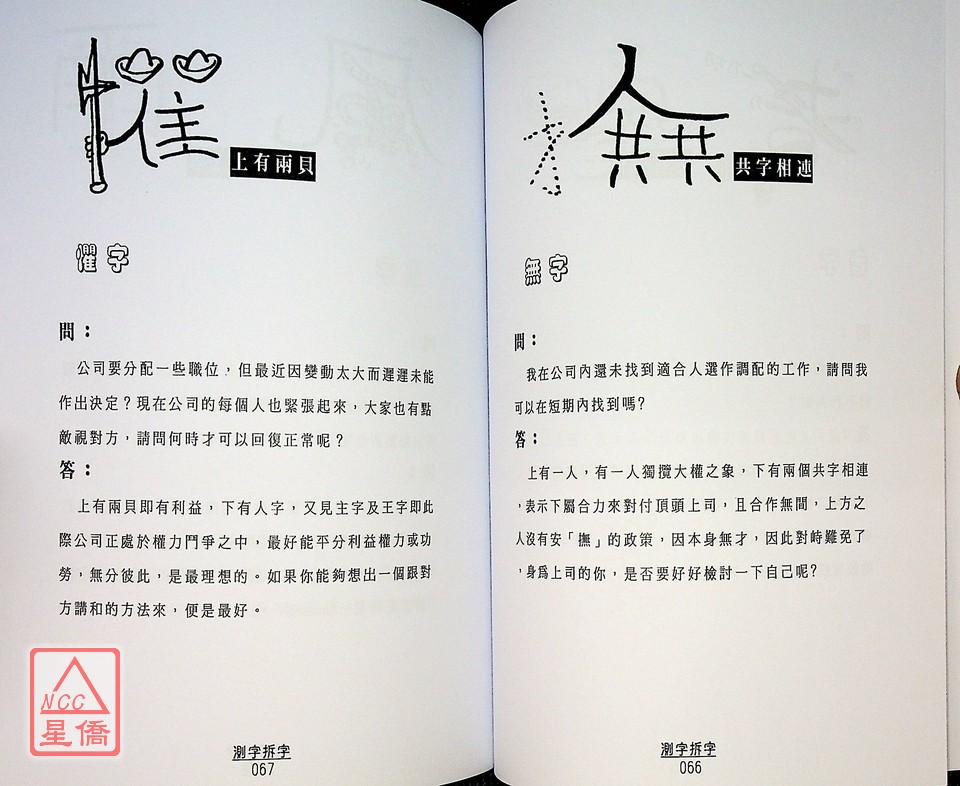 上有兩貝
懼字
問：
公司要分配一些職位，但最近因變動太大而遲遲未能
作出決定？現在公司的每個人也緊張起來，大家也有點
敵視對方，請問何時才可以回復正常呢？
答：
上有兩貝即有利益，下有人字，又見主字及王字即此
際公司正處於權力鬥爭之中，最好能平分利益權力或功
勞，無分彼此，是最理想的。如果你能夠想出一個跟對
方講和的方法來，便是最好。
測字拆字
067
NCC
星僑
共字相連
無字
問：
我在公司內還未找到適合人選作調配的工作，請問我
可以在短期內找到嗎？
答：
上有一人，有一人獨攬大權之象，下有兩個共字相連
，表示下屬合力來對付頂頭上司，且合作無間，上方之
人沒有安「撫」的政策，因本身無才，因此對峙難免了
，身爲上司的你，是否要好好檢討一下自己呢？
測字拆字
066